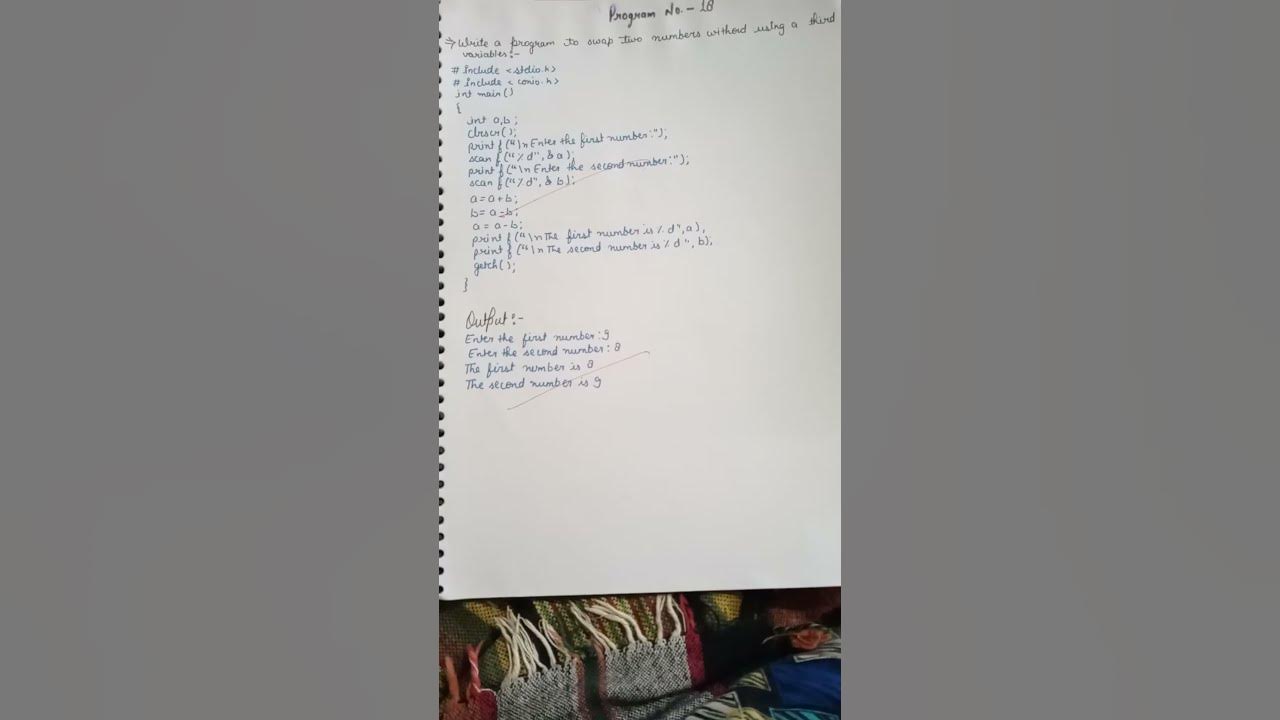 Program No. - 18
⇒ Write a program to swap two numbers without using a third
variables:-
# Include <stdio.h>
# Include < conio.h>
int main()
{
int a,b ;
clrscr();
printf("\n Enter the first number:");
scanf("%d", & a);
printf("\n Enter the second number:");
scanf("%d", & b);
a = a + b;
b = a - b;
a = a - b;
printf("\n The first number is % d", a),
printf("\n The second number is % d ", b);
getch();
}
Output:-
Enter the first number: 9
Enter the second number: 8
The first number is 8
The second number is 9